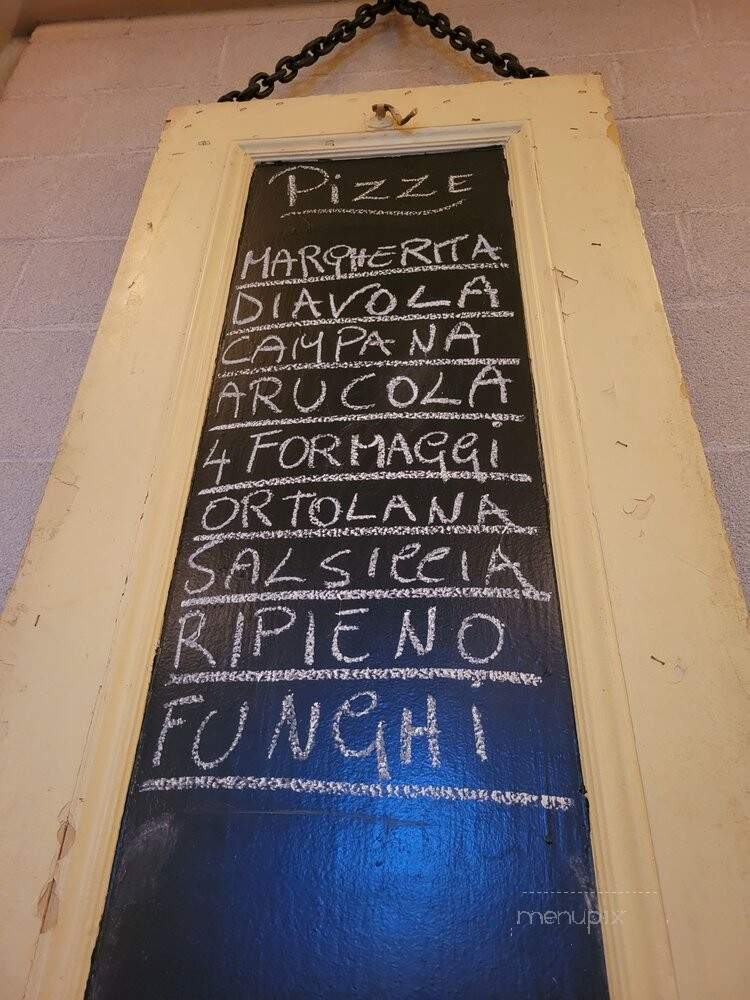 Pizze
MARGHERITA
DIAVOLA
CAMPANA
ARUCOLA
4 FORMAGGi
ORTOLANA
SALSICCIA
RIPIENO
FUNGHi
menupix